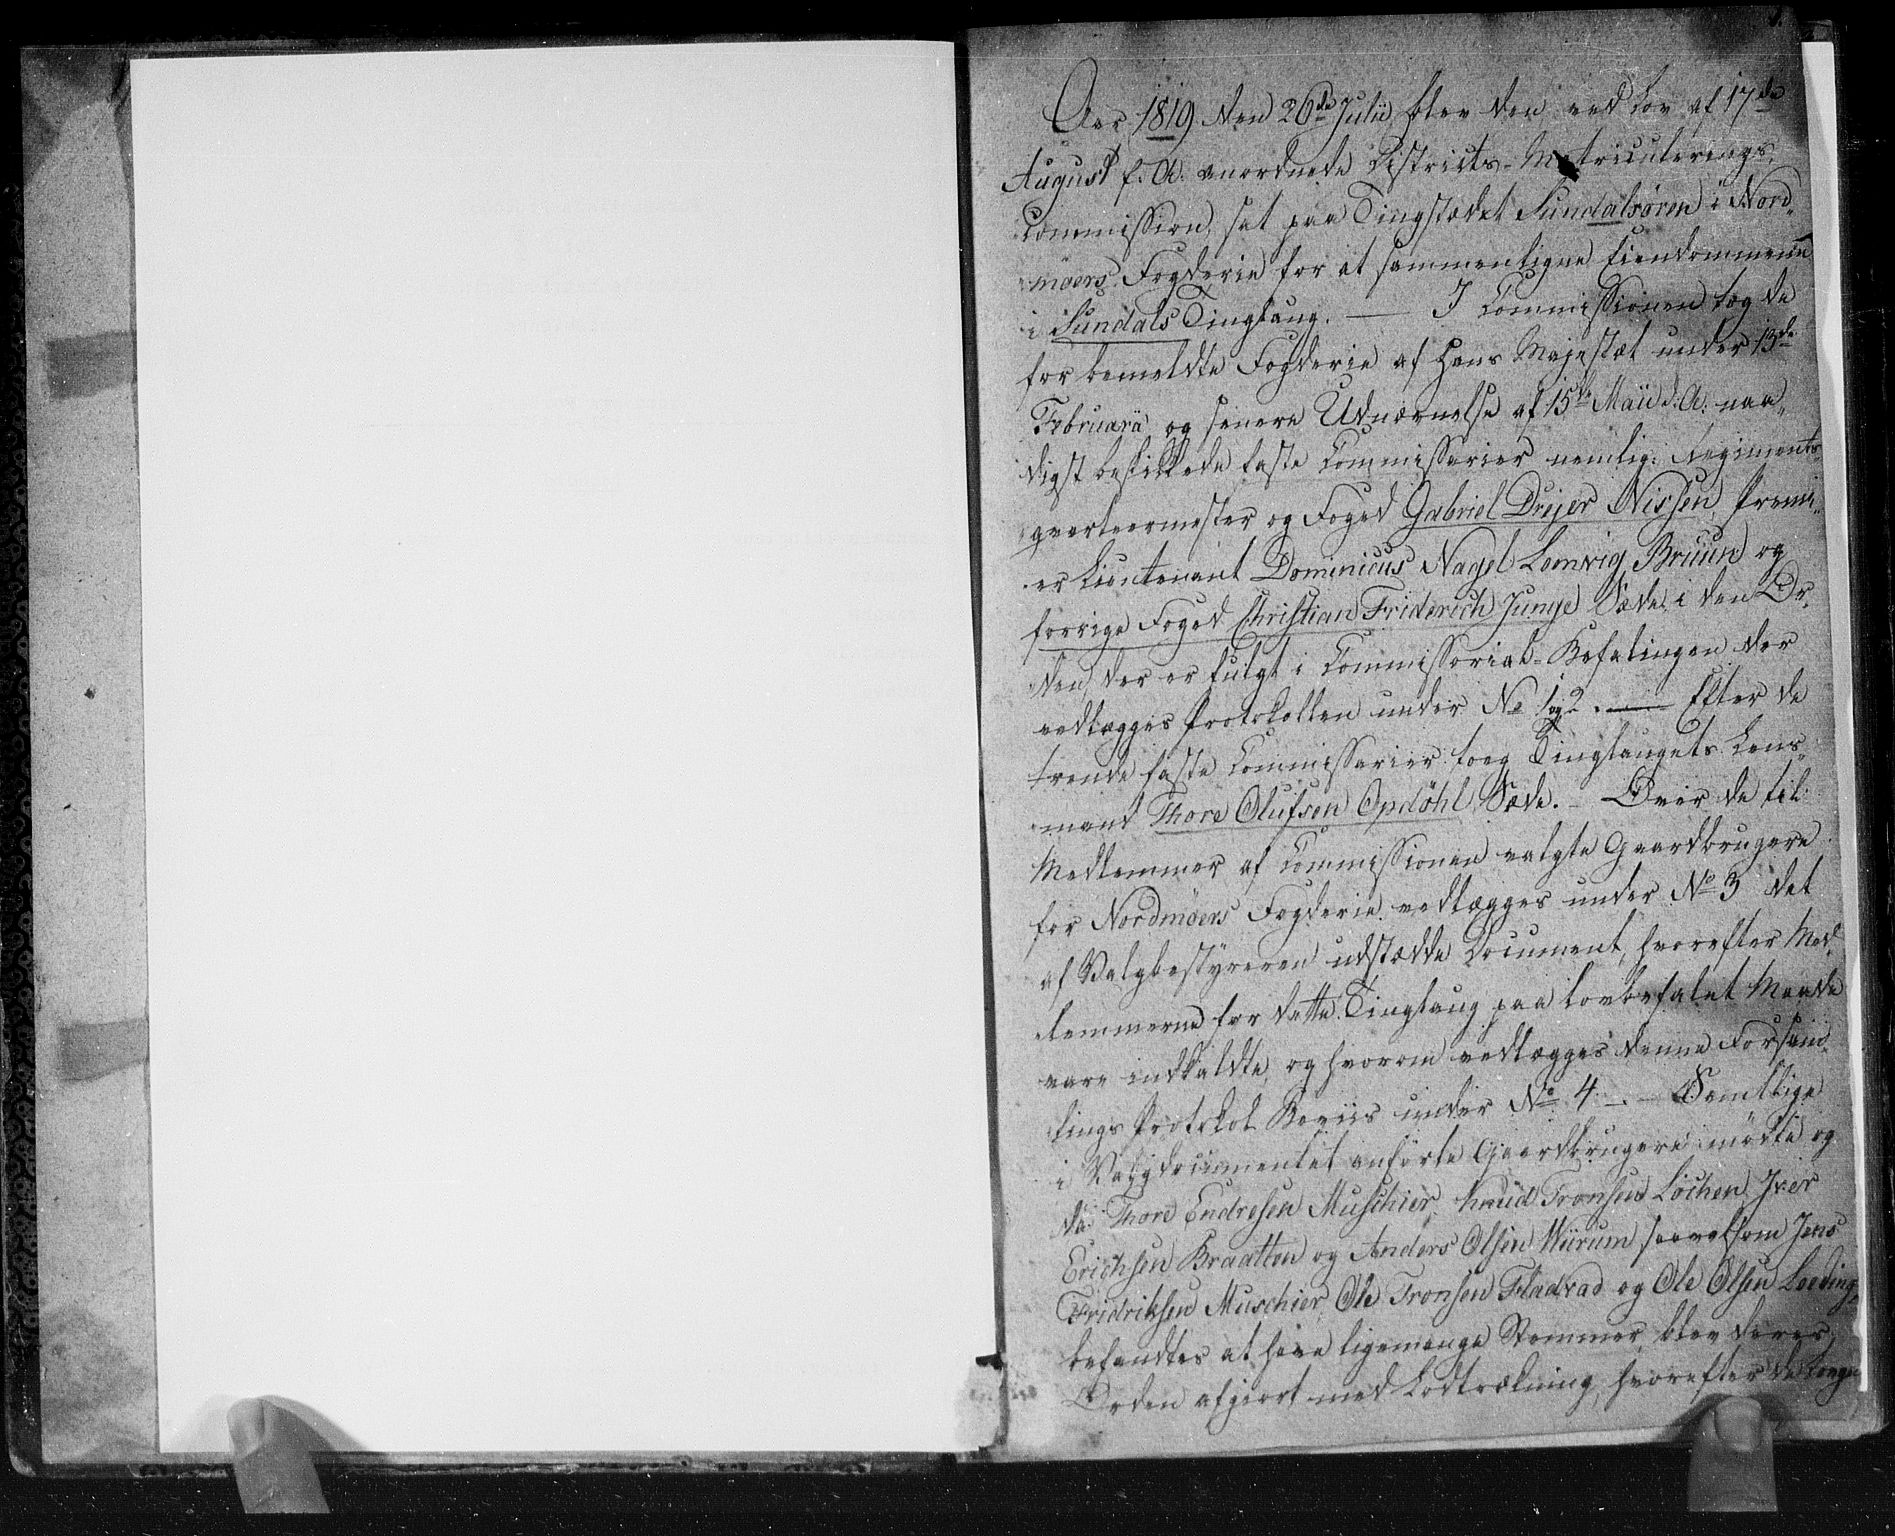 1.
Aar 1819 den 26de Julii blev den ved Lov af 17de
August f. A. anordnede Districts-Matriculerings,
Commission, sat paa Tingstædet Sundalsören i Nord„
möers Fogderie for at sammenligne Eiendommene
i Sundals Tinglaug. — I Commissionen tog de
for bemeldte Fogderie af Hans Majestæt under 13de
Februarii og senere Udnævnelse af 15de Maii d. A. naa„
digst beskikkede faste Commissarier nemlig: Regiments„
qvarteermester og Foged Gabriel Drejer Nissen, Premi„
er Lieutenant Dominicus Nagel Lemvig Bruun og
forrige Foged Christian Friderich Junge Sæde, i den Or„
den, der er fulgt i Commissorial-Befalingen der
vedlægges Protokollen under No 1 og 2. — Efter de
trende faste Commissarier toeg Tinglaugets Lens„
mand Thore Olufsen Opdöhl Sæde. — Over de til
Medlemmer af Commissionen valgte Gaardbrugere
for Nordmöers Fogderie vedlægges under No 3 det
af Valgbestyreren udstædde Document, hvorefter Med„
lemmerne for dette Tinglaug paa lovbefalet Maade
vare indkaldte, og hvorom vedlægges denne Forhand„
lings Protokol Beviis under No 4 —. — Samtlige
i Valgdocumentet anførte Gaardbrugere mödte og
da Thore Endresen Muschier, Knud Tronsen Löchen Iver
Erichsen Braatten og Anders Olsen Wiirum saavelsom Jens
Fridriksen Muschier, Ole Tronsen Fladvad og Ole Olsen Loeding„
befandtes at have ligemange Stemmer, blev deres
Orden afgiort med Lodtrækning, hvorefter de toege